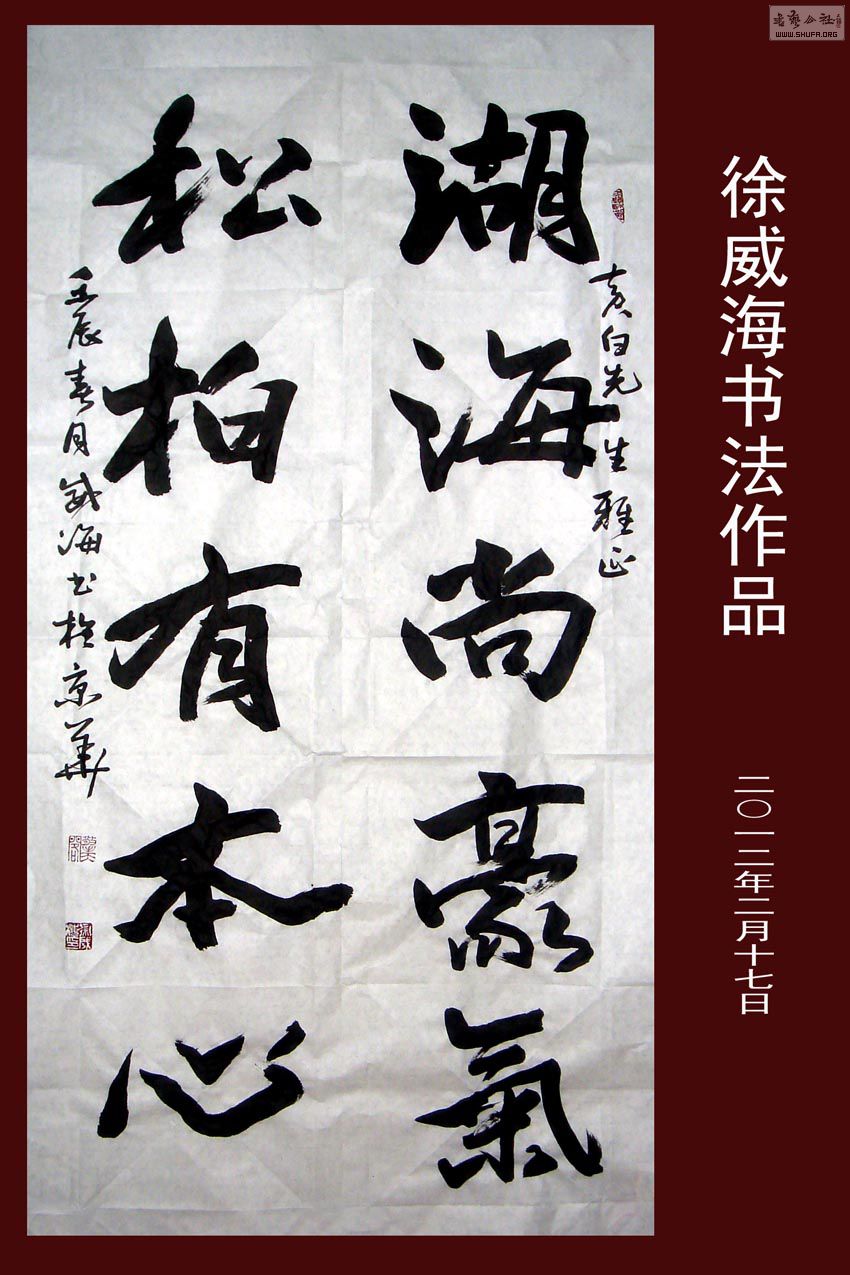 書藝公社
WWW.SHUFA.ORG
徐威海书法作品
二〇一二年二月十七日
白先生雅正
湖海尚豪氣
松柏有本心
壬辰春月威海书於京華